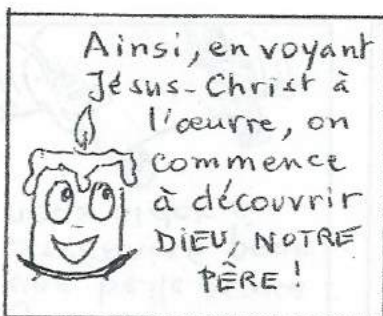 Ainsi, en voyant
Jésus-Christ à
l'œuvre, on
commence
à découvrir
DIEU, NOTRE
PÈRE !